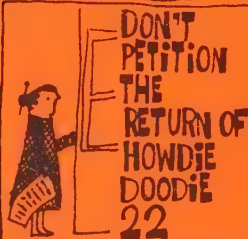 DON'T
PETITION
THE
RETURN OF
HOWDIE
DOODIE
22